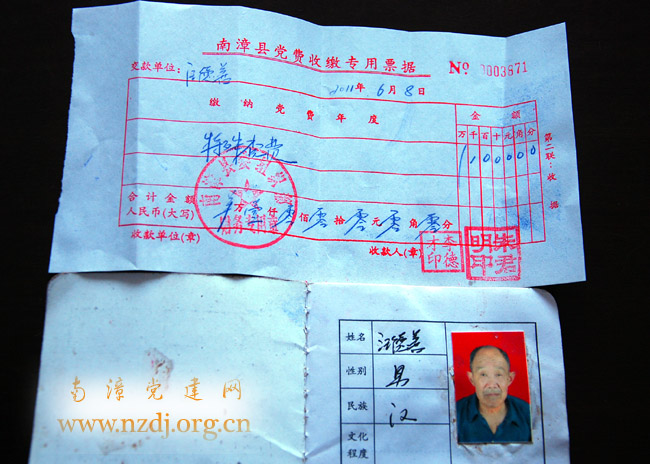 南漳县党费收缴专用票据 №
交款单位:
2011年6月8日
缴纳党费年度 金额
万千百十元角分
特殊党费 1100000
合计金额
人民币(大写) 万壹仟零佰零拾零元零角零分
收款单位(章) 收款人(章)
李德才印
朱君明印
第二联:收据
姓名
性别 男
民族 汉
文化
程度
南漳党建网
www.nzdj.org.cn